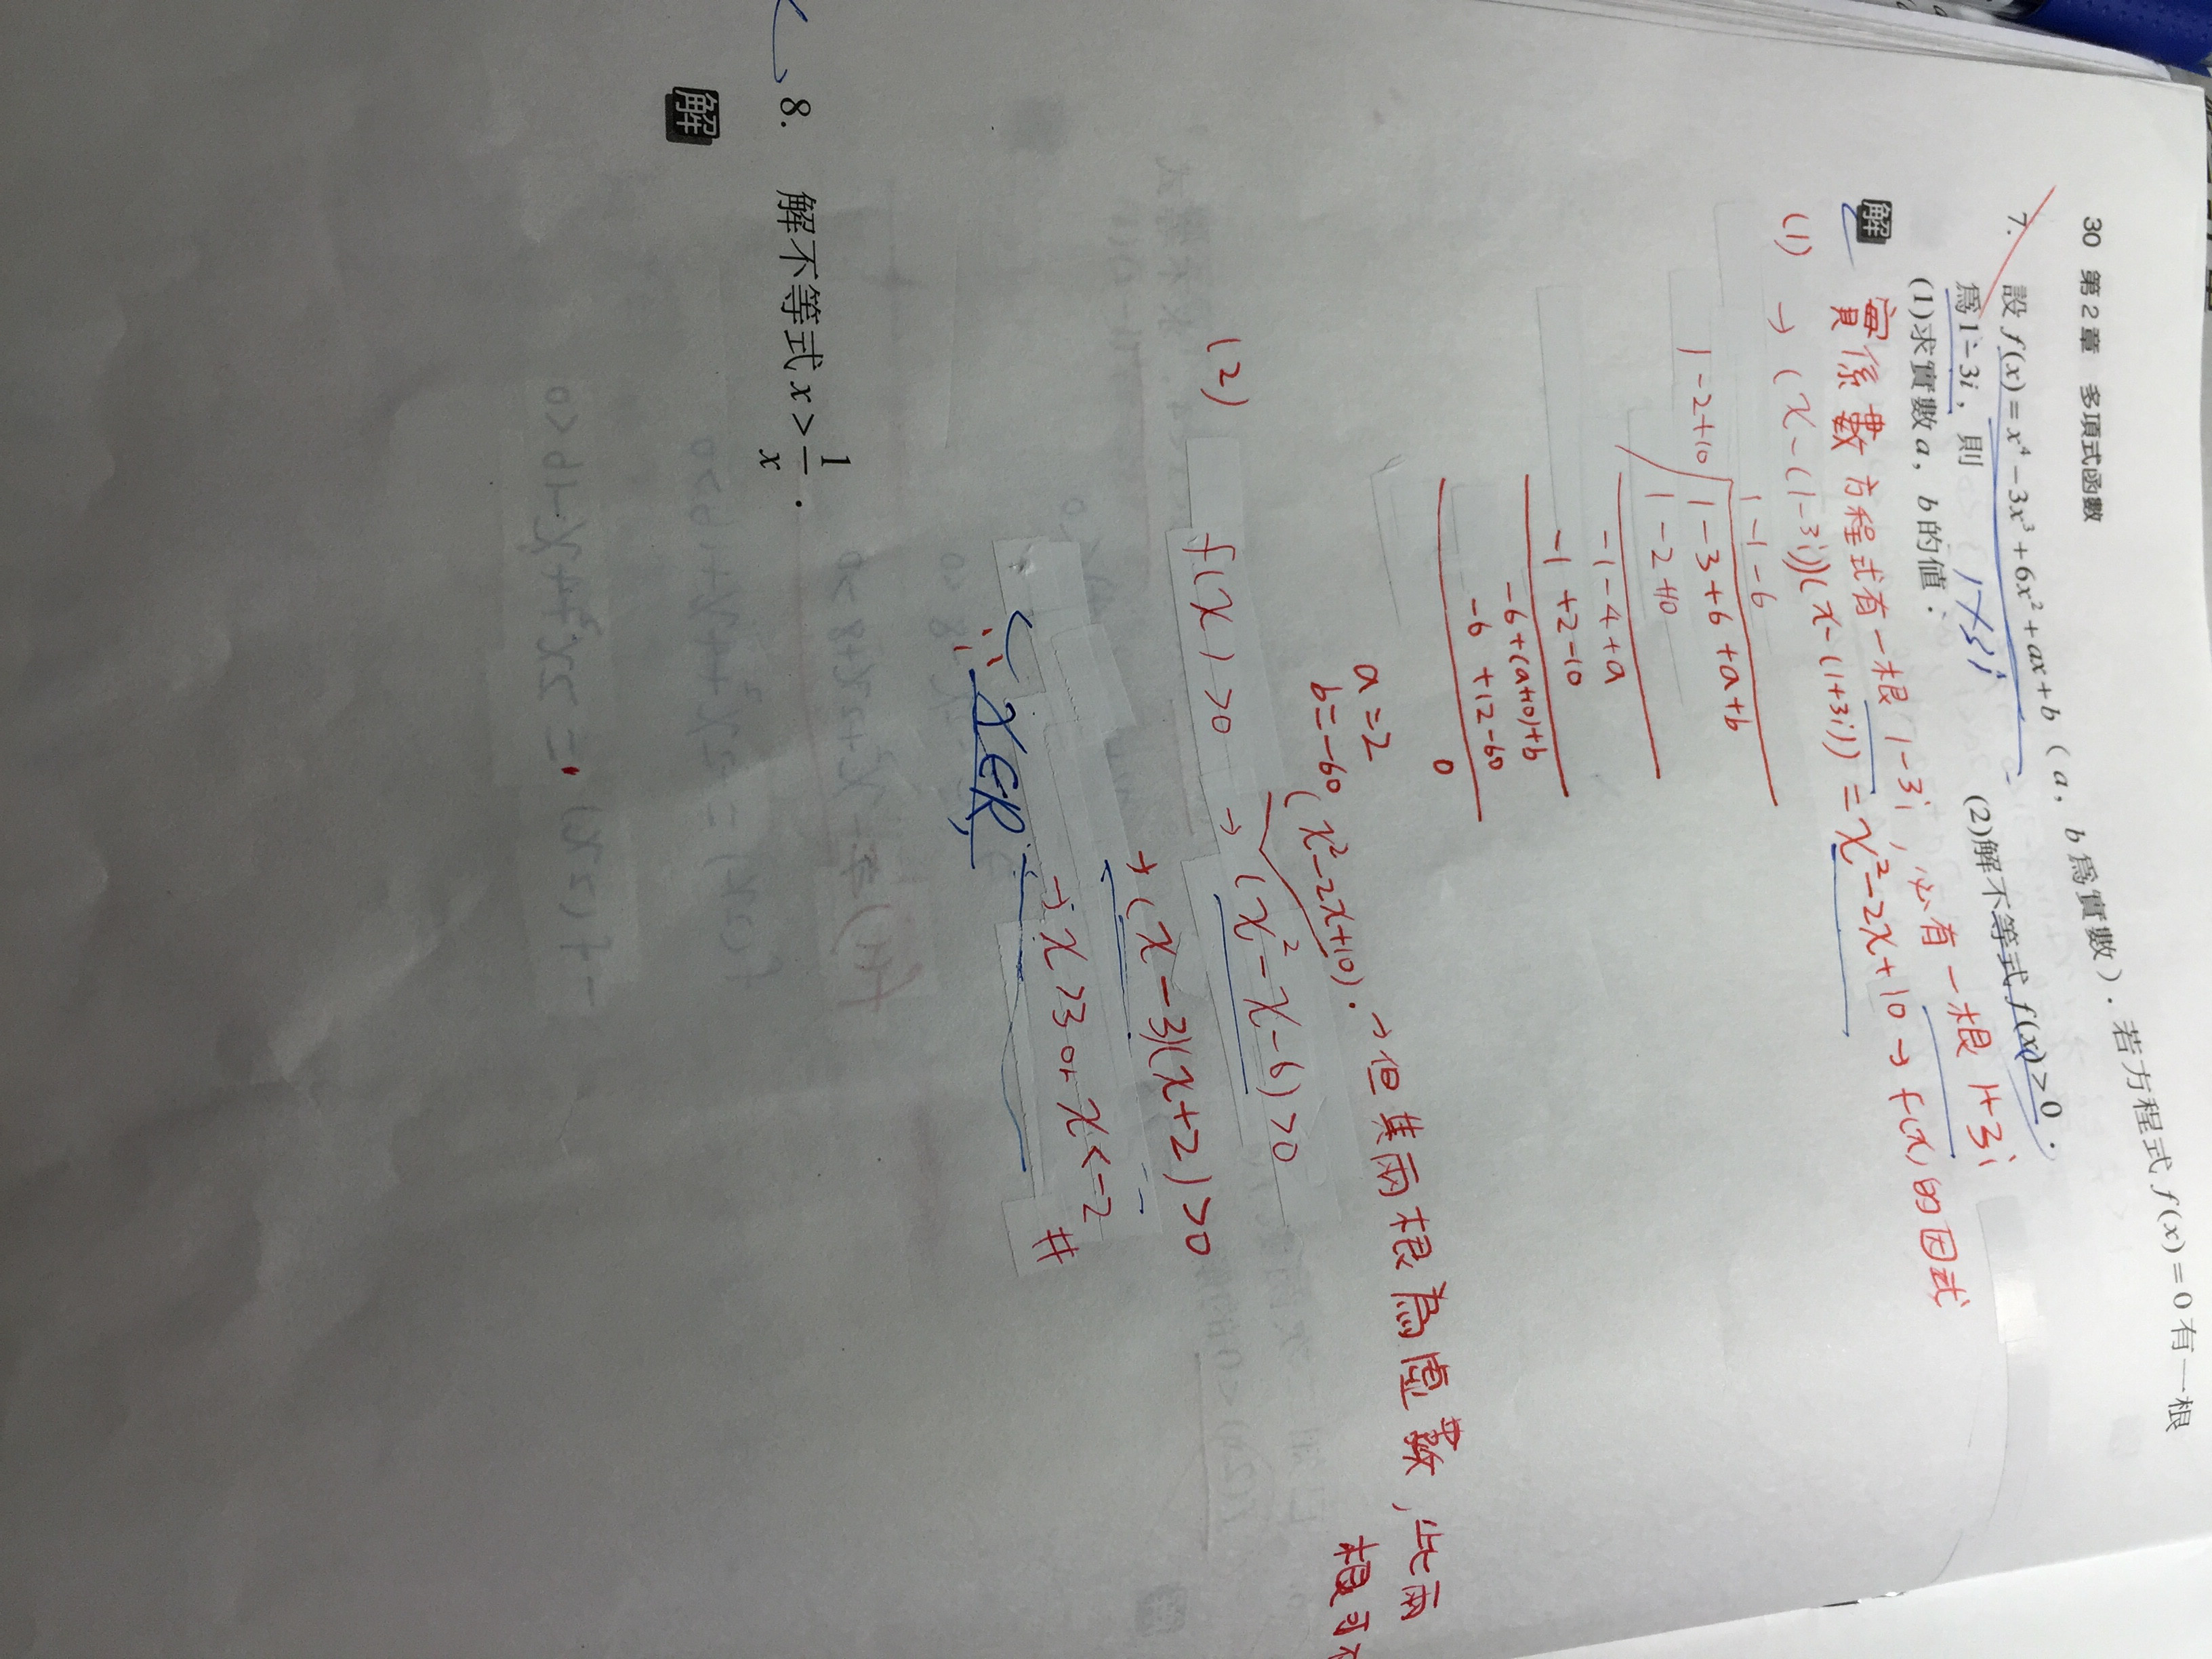 30 第2章 多項式函數
7. 設 f(x)=x⁴−3x³+6x²+ax+b（a，b為實數）．若方程式 f(x)=0有一根
為1−3i，則
(1)求實數a，b的值： (2)解不等式 f(x)>0．
解 實係數方程式有一根 1-3i，必有一根 1+3i
(1) → (x-(1-3i))(x-(1+3i)) = x²-2x+10 → f(x)的因式
1-1-6
1-2+10 1-3+6+a+b
1-2+10
-1-4+a
-1+2-10
-6+(a+10)+b
-6+12-60
0
a=2
b=-60
(x²-2x+10). →但其兩根為虛數，此兩
根可不
(2) f(x)>0 → (x²-x-6)>0
→(x-3)(x+2)>0
→x>3 or x<-2 #
x∈R
8. 解不等式 x>1/x．
解